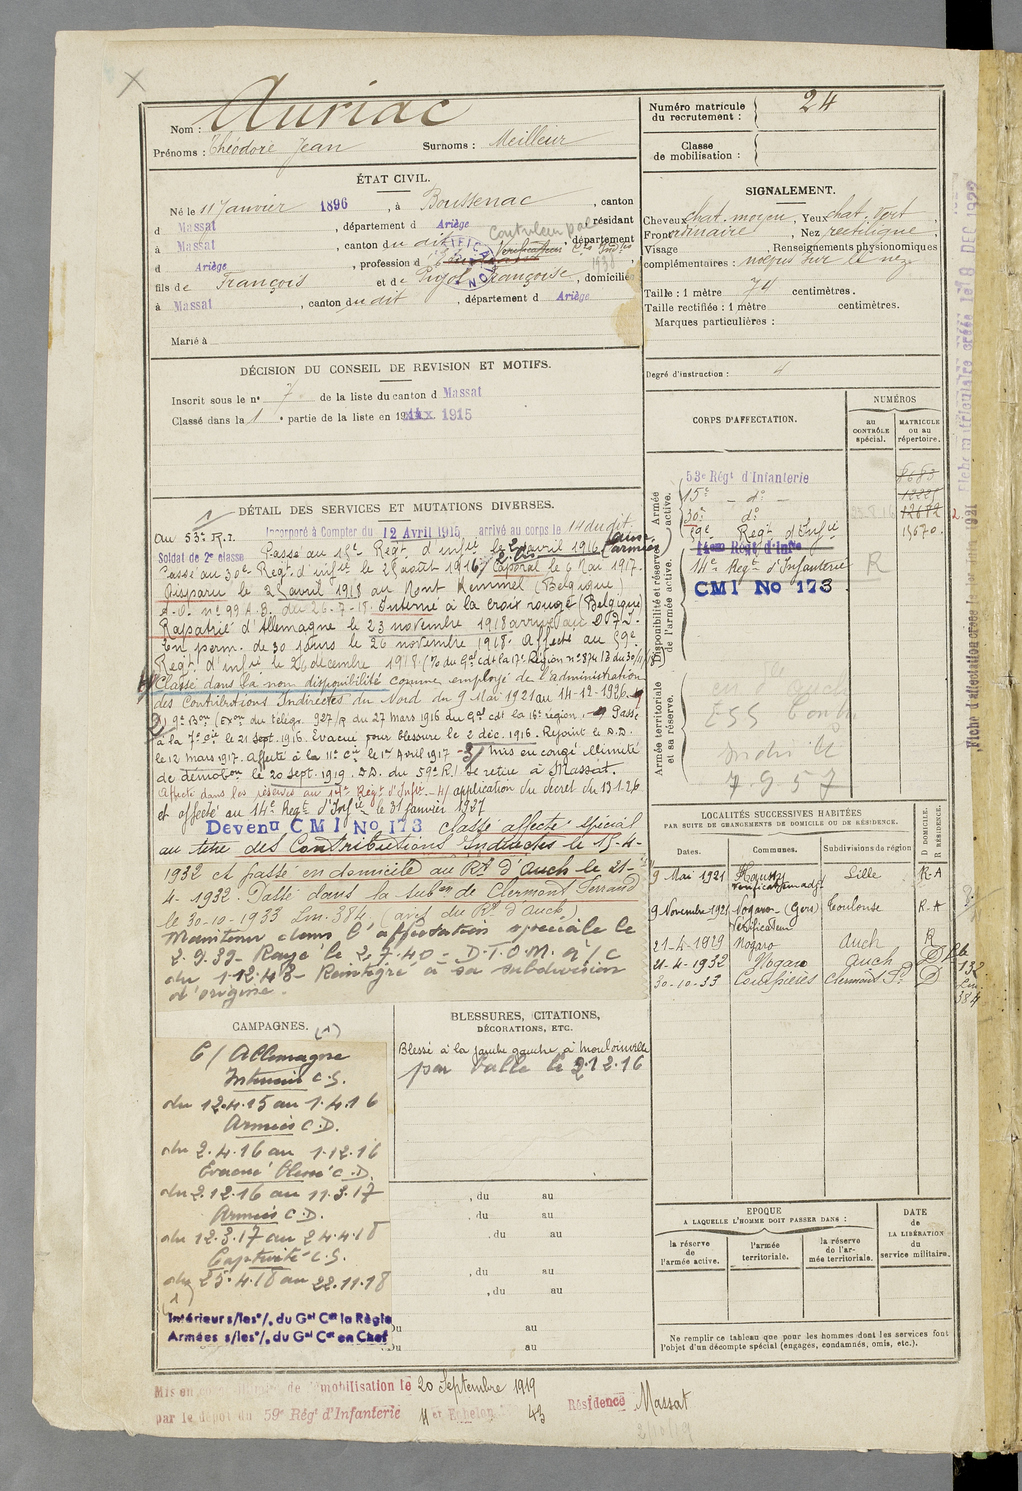 Nom : Auriac
Prénoms : Théodore Jean Surnoms : Meilleur
Numéro matricule
du recrutement : 24
Classe
de mobilisation :
ÉTAT CIVIL.
Né le 11 Janvier 1896, à Boussenac, canton
d Massat, département d Ariège, résidant
à Massat, canton du dit, département
d Ariège, profession d
fils de François et de Pujol Françoise, domiciliés
à Massat, canton du dit, département d Ariège
Marié à
SIGNALEMENT.
Cheveux chat. moyen, Yeux chat. vert
Front ordinaire, Nez rectiligne,
Visage , Renseignements physionomiques
complémentaires : nœpus sur le nez
Taille : 1 mètre 74 centimètres.
Taille rectifiée : 1 mètre centimètres.
Marques particulières :
Degré d'instruction : 4
DÉCISION DU CONSEIL DE REVISION ET MOTIFS.
Inscrit sous le n° 7 de la liste du canton d Massat
Classé dans la 1e partie de la liste en 1915
CORPS D'AFFECTATION.
NUMÉROS
au
CONTRÔLE
spécial.
MATRICULE
ou au
répertoire.
Armée
active.
53e Régt d'Infanterie 8683
15e - do - 12225
30e do 12682
59e Regt d'Infie 15670.
Disponibilité et réserve
de l'armée active.
14eme Regt d'Infie
14e Regt d'Infanterie R
CMI No 173
Armée territoriale
et sa réserve.
7.9.57
DÉTAIL DES SERVICES ET MUTATIONS DIVERSES.
au 53e R.I. Incorporé à Compter du 12 Avril 1915 arrivé au corps le 14 dudit.
Soldat de 2e classe Passé au 15e Regt d'infie le 2 avril 1916 (aux armées)
Passé au 30e Regt d'infie le 28 août 1916 Caporal le 6 Mai 1917.
Disparu le 25 avril 1918 au Mont Kemmel (Belgique)
du 26-7-18. Interné à la croix rouge (Belgique)
Rapatrié d'Allemagne le 23 novembre 1918 arrivé au
En perm. de 30 jours le 26 novembre 1918. Affecté au 59e
Regt d'infie le 26 décembre 1918 (No du Gal cdt la 17e Région n° 874 13 du 30/11/18)
Classé dans la non disponibilité comme employé de l'administration
des Contributions Indirectes du Nord du 9 Mai 1921 au 14-12-1926.
9e Bon (Exon du télégr. 927/R du 27 Mars 1916 du Gal cdt la 16e région. Passé
à la 7e Cie le 21 Sept. 1916. Evacué pour blessure le 2 déc. 1916. Rejoint le D.D.
le 12 mars 1917. Affecté à la 11e Cie le 1er Avril 1917 - 3/ mis en congé illimité
de démobon le 20 sept. 1919. D.D. du 59e R.I. Se retire à Massat.
Affecté dans les réserves au 14e Regt d'Infie. - 4/ application du décret du 13.1.26
et affecté au 14e Regt d'Infie le 31 janvier 1927
Devenu CMI No 173 classé affecté spécial
au titre des Contributions Indirectes le 15-4-
1932 et passé en domicile au Rt d'Auch le 21-
4-1932. Passé dans la subon de Clermont Ferrand
le 30-10-1933 Lin. 384 (avis du Rt d'Auch)
Maintenu dans l'affectation spéciale le
2.9.39 - Rayé le 2.7.40 - D.T.O.M. a/c
du 1.12.48 - Réintégré à sa subdivision
d'origine.
LOCALITÉS SUCCESSIVES HABITÉES
PAR SUITE DE CHANGEMENTS DE DOMICILE OU DE RÉSIDENCE.
Dates. Communes. Subdivisions de région. D DOMICILE. R RÉSIDENCE.
9 Mai 1921 Lille R-A
9 Novembre 1921 Nogaro - (Gers) Toulouse R-A
Vérificateur
21-4-1929 Nogaro Auch R
21-4-1932 Nogaro Auch D
30-10-33 Courpières Clermont Fd D
Lin. 384
CAMPAGNES. (1)
C/ Allemagne
Intérieur C.S.
du 12.4.15 au 1.4.16
Armées C.D.
du 2.4.16 au 1.12.16
Evacué blessé C.D.
du 2.12.16 au 11.3.17
Armées C.D.
du 12.3.17 au 24.4.18
Captivité C.S.
du 25.4.18 au 22.11.18
Intérieur s/les o/. du Gal Ct la Régie
Armées s/les o/. du Gal Ct en Chef
BLESSURES, CITATIONS,
DÉCORATIONS, ETC.
Blessé à la jambe gauche à Moulainville
par balle le 2.12.16
, du au
, du au
, du au
, du au
, du au
Du au
Du au
EPOQUE
A LAQUELLE L'HOMME DOIT PASSER DANS :
la réserve
de l'armée active.
l'armée
territoriale.
la réserve
de l'ar-
mée territoriale.
DATE
de
LA LIBÉRATION
du
service militaire.
Ne remplir ce tableau que pour les hommes dont les services font
l'objet d'un décompte spécial (engagés, condamnés, omis, etc.).
Mis en congé illimité de démobilisation le 20 Septembre 1919
par le dépôt du 59e Régt d'Infanterie 11 et Echelon 43 Résidence Massat